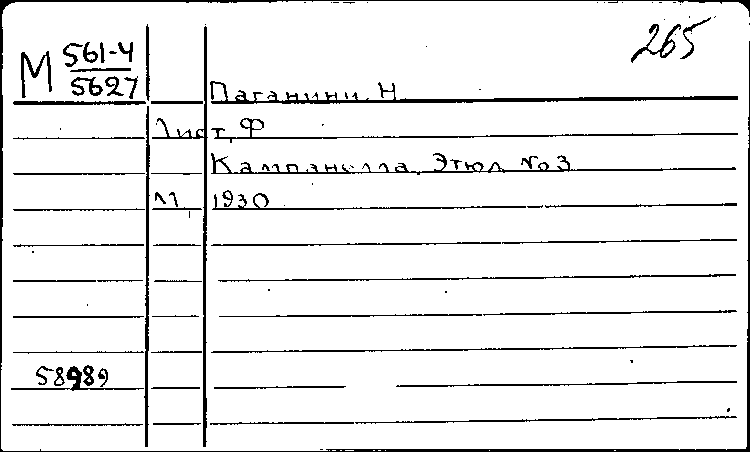 265
М 561-4
5627
Паганини, Н.
Лист, Ф
Кампанелла. Этюд №3
М., 1930
58989